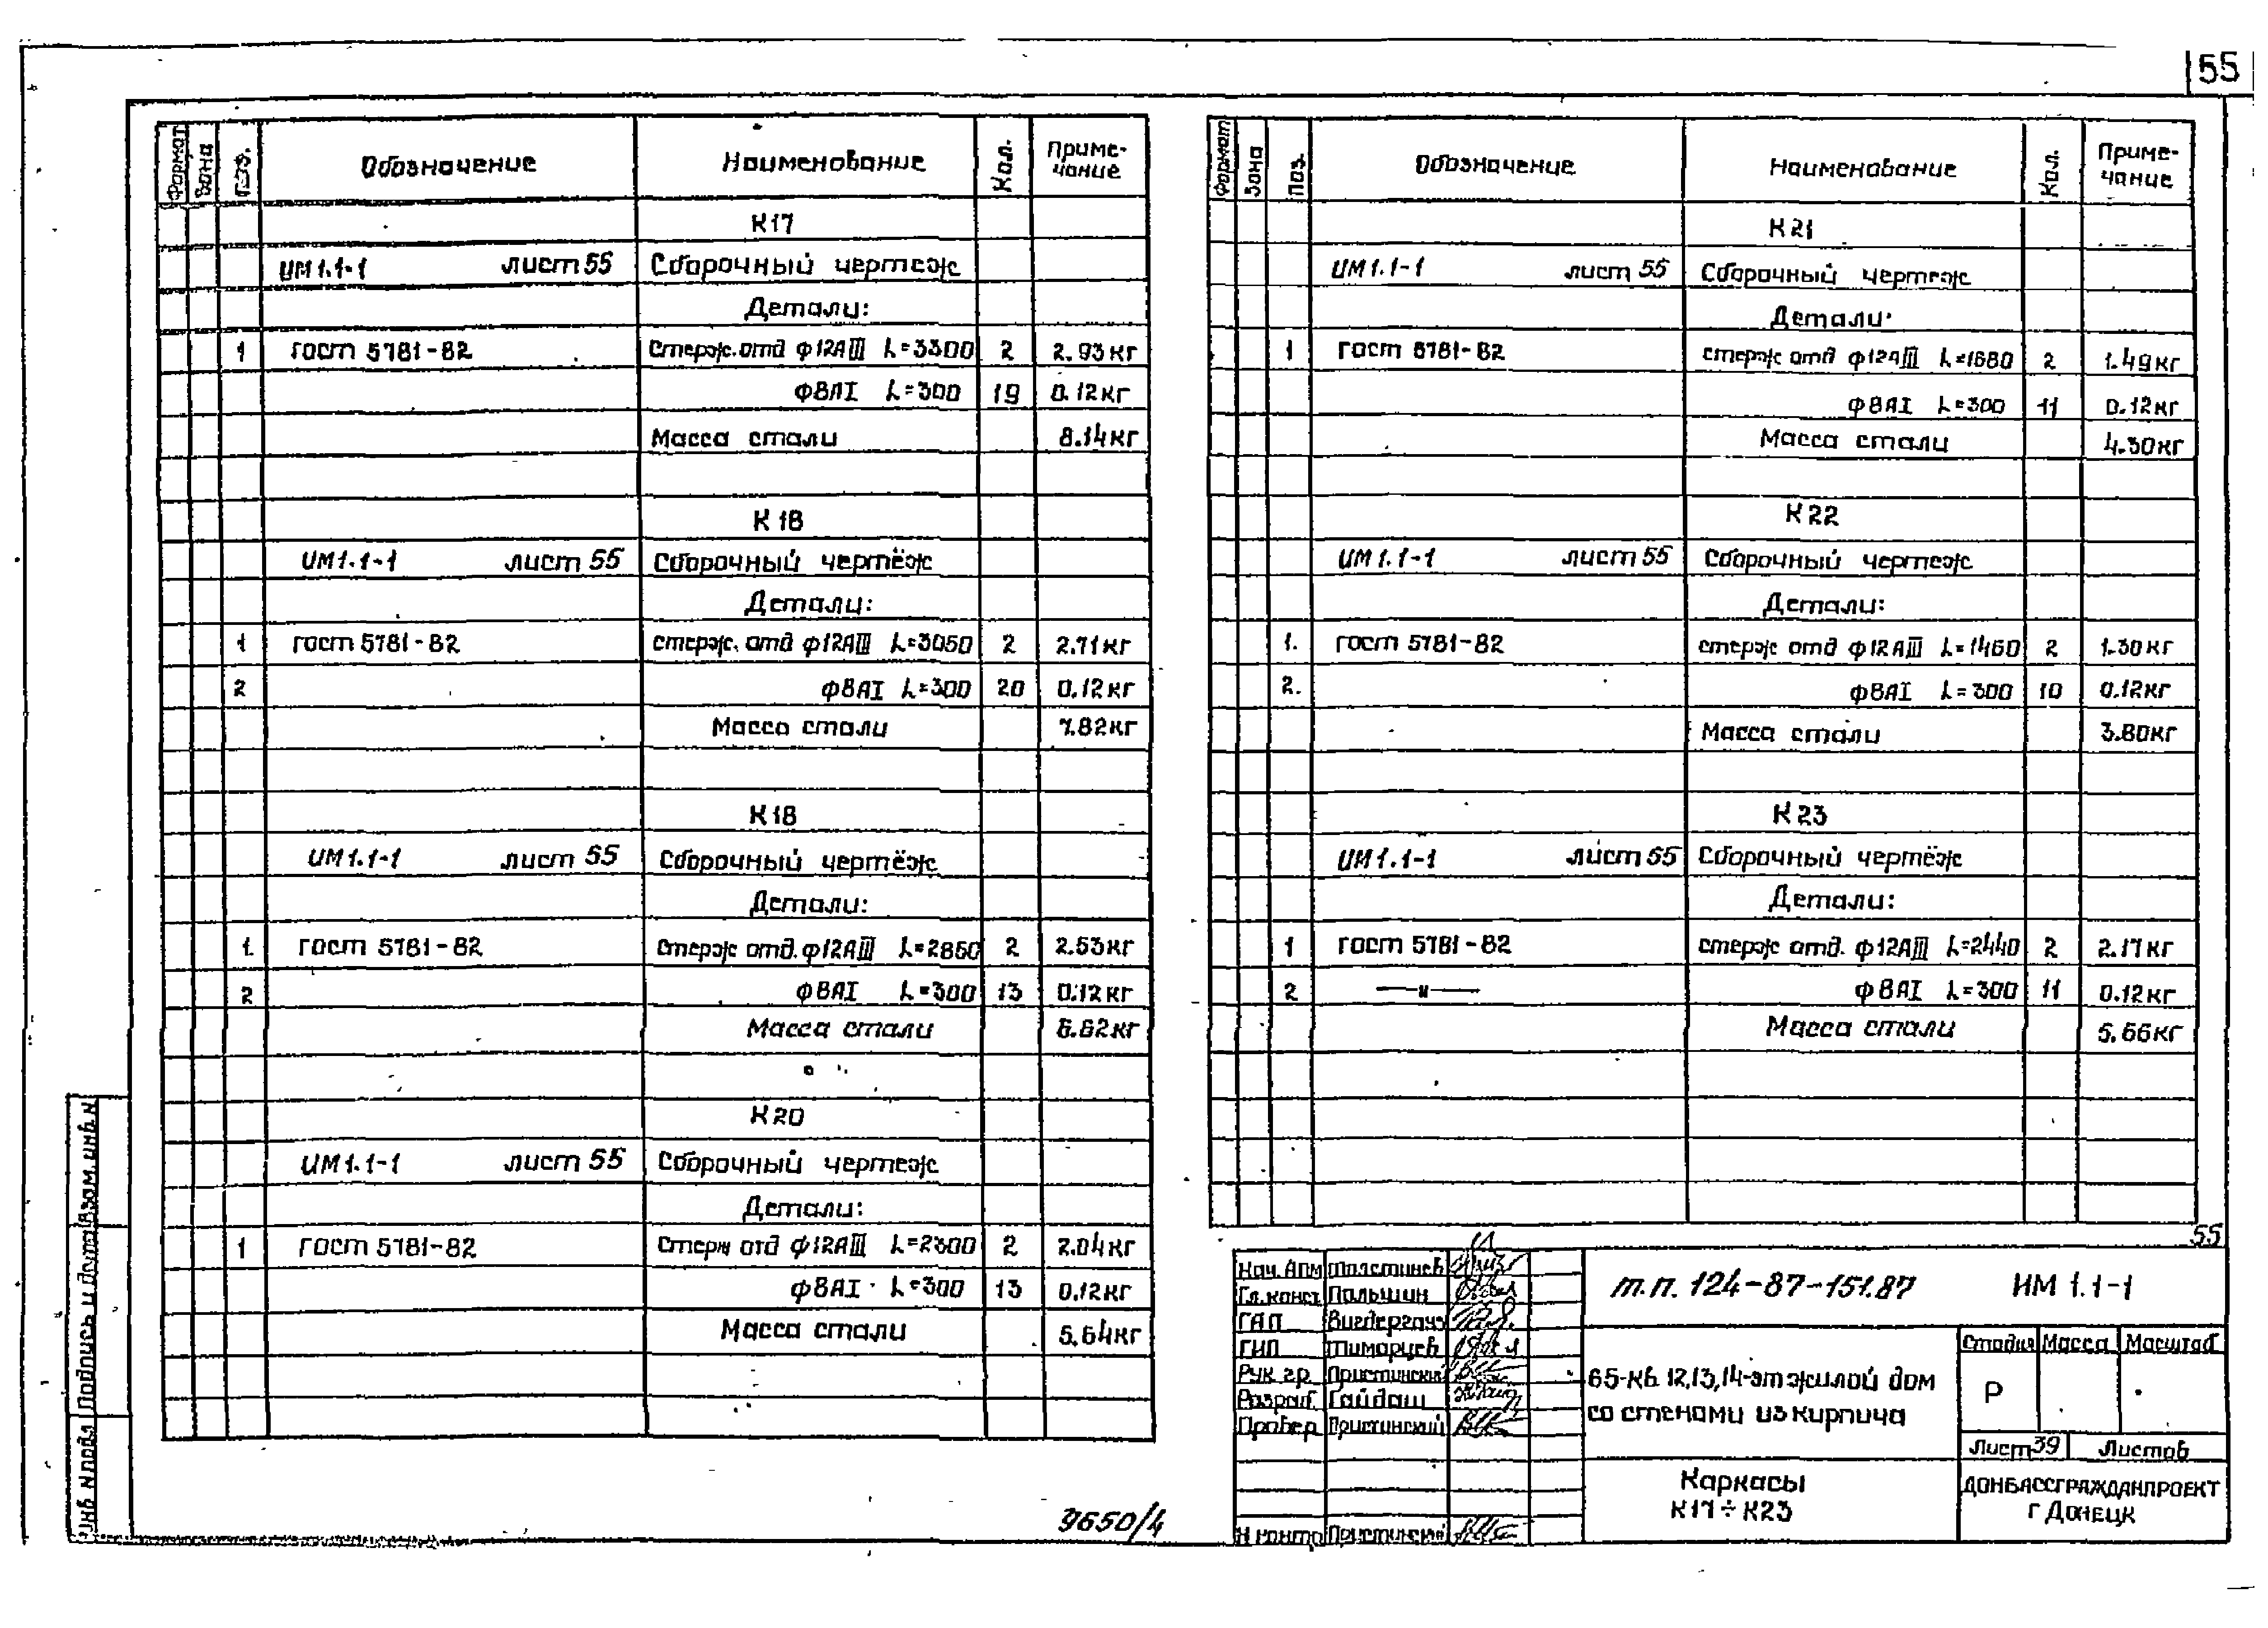 55
Формат Зона Поз. Обозначение Наименование Кол. Приме-
чание
К17
ИМ 1.1-1 лист 55 Сборочный чертеж
Детали:
1 ГОСТ 5781-82 Стерж. отд ф12АIII L=3300 2 2.93 кг
ф8АI L=300 19 0.12 кг
Масса стали 8.14 кг
К 18
ИМ 1.1-1 лист 55 Сборочный чертёж
Детали:
1 ГОСТ 5781-82 стерж. отд ф12АIII L=3050 2 2.71 кг
2 ф8АI L=300 20 0.12 кг
Масса стали 7.82 кг
К18
ИМ 1.1-1 лист 55 Сборочный чертёж
Детали:
1. ГОСТ 5781-82 Стерж отд. ф12АIII L=2850 2 2.53 кг
2 ф8АI L=300 13 0.12 кг
Масса стали 6.62 кг
К20
ИМ 1.1-1 лист 55 Сборочный чертеж
Детали:
1 ГОСТ 5781-82 Стерж отд ф12АIII L=2300 2 2.04 кг
ф8АI L=300 13 0.12 кг
Масса стали 5.64 кг
Формат Зона Поз. Обозначение Наименование Кол. Приме-
чание
К 21
ИМ 1.1-1 лист 55 Сборочный чертеж
Детали:
1 ГОСТ 5781-82 стерж отд ф12АIII L=1680 2 1.49 кг
ф8АI L=300 11 0.12 кг
Масса стали 4.30 кг
К 22
ИМ 1.1-1 лист 55 Сборочный чертеж
Детали:
1. ГОСТ 5781-82 стерж отд ф12АIII L=1460 2 1.30 кг
2. ф8АI L=300 10 0.12 кг
Масса стали 3.80 кг
К 23
ИМ 1.1-1 лист 55 Сборочный чертёж
Детали:
1 ГОСТ 5781-82 стерж отд. ф12АIII L=2440 2 2.17 кг
2 —〃— ф8АI L=300 11 0.12 кг
Масса стали 5.66 кг
55
Нач. АПМ Толстинев
Гл. конст Пальшин
ГАП Вигдергауз
ГИП Тимарцев
Рук. гр. Пристинский
Разраб. Гайдаш
Провер Пристинский
Н контр Пристинский
т.п. 124-87-151.87 ИМ 1.1-1
65-кв. 12,13,14-эт жилой дом
со стенами из кирпича
Стадия Масса Масштаб
Р
Лист 39 Листов
Каркасы
К17÷К23
ДОНБАССГРАЖДАНПРОЕКТ
г Донецк
9650/4
Инв N подл Подпись и дата Взам. инв. N